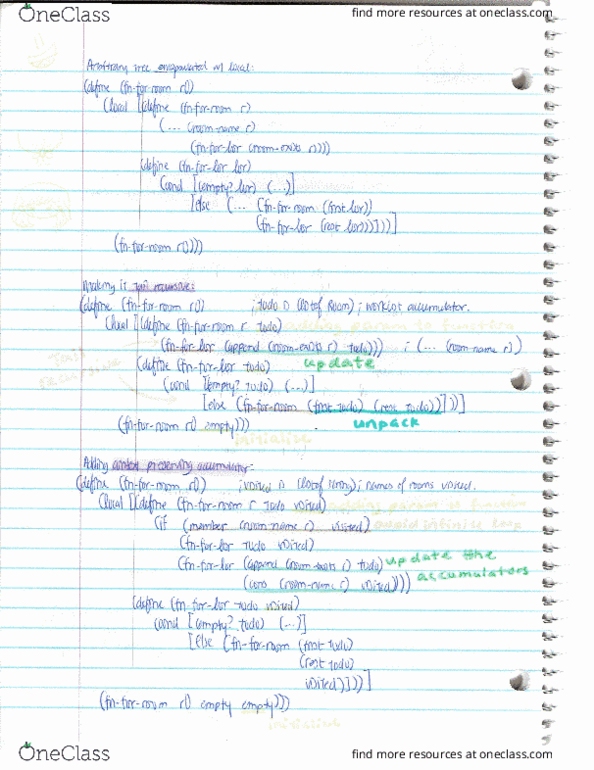 OneClass
find more resources at oneclass.com
Arbitrary tree encapsulated in local:
(define (fn-for-room r0)
(local [(define (fn-for-room r)
(... (room-name r)
(fn-for-lor (room-exits r))))
(define (fn-for-lor lor)
(cond [(empty? lor) (...)]
[else (... (fn-for-room (first lor))
(fn-for-lor (rest lor)))]))]
(fn-for-room r0)))
Making it tail recursive:
(define (fn-for-room r0) ; todo is (listof Room) ; worklist accumulator.
(local [(define (fn-for-room r todo) adding param to function
(fn-for-lor (append (room-exits r) todo))) ; (... (room-name r))
Tail recursive
(define (fn-for-lor todo) update
(cond [(empty? todo) (...)]
[else (fn-for-room (first todo) (rest todo))]))]
(fn-for-room r0 empty))) unpack
initialize
Adding context preserving accumulator:
(define (fn-for-room r0) ; visited is (listof String) ; names of rooms visited.
(local [(define (fn-for-room r todo visited) adding param to function
(if (member (room-name r) visited) avoid infinite loop
(fn-for-lor todo visited)
(fn-for-lor (append (room-exits r) todo) update the
(cons (room-name r) visited)))) accumulators
(define (fn-for-lor todo visited)
(cond [(empty? todo) (...)]
[else (fn-for-room (first todo)
(rest todo)
visited)]))]
(fn-for-room r0 empty empty)))
initialize
OneClass
find more resources at oneclass.com